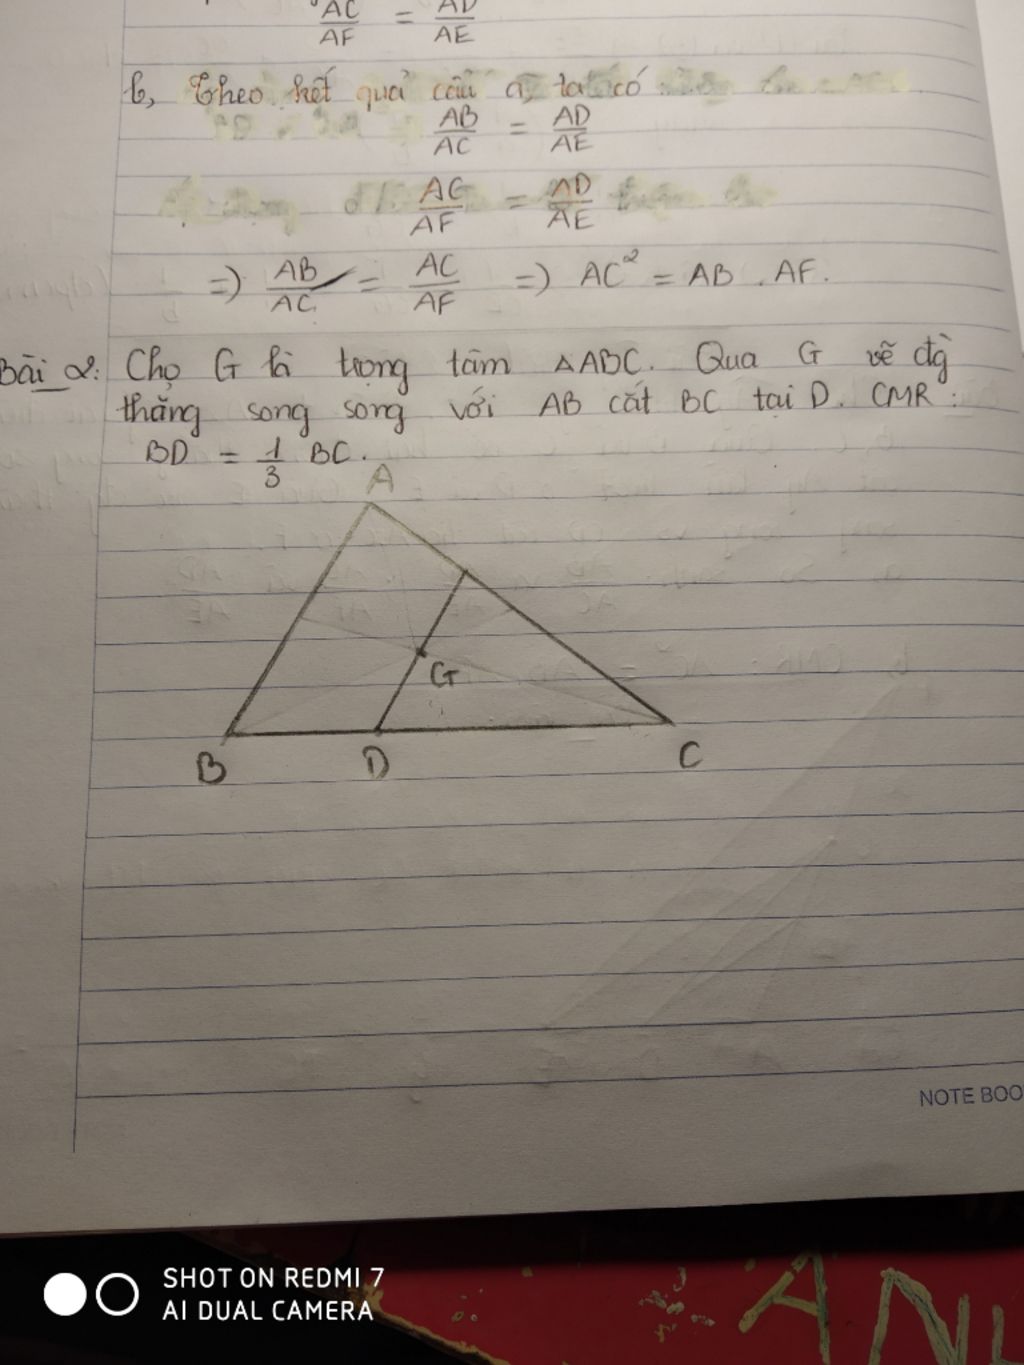 AC/AF = AD/AE
b, Theo kết quả câu a, ta có
AB/AC = AD/AE
AC/AF = AD/AE
=) AB/AC = AC/AF =) AC² = AB . AF.
Bài 2: Cho G là trọng tâm △ABC. Qua G vẽ đg
thẳng song song với AB cắt BC tại D. CMR:
BD = 1/3 BC.
A
G
B D C
NOTE BOO
SHOT ON REDMI 7
AI DUAL CAMERA